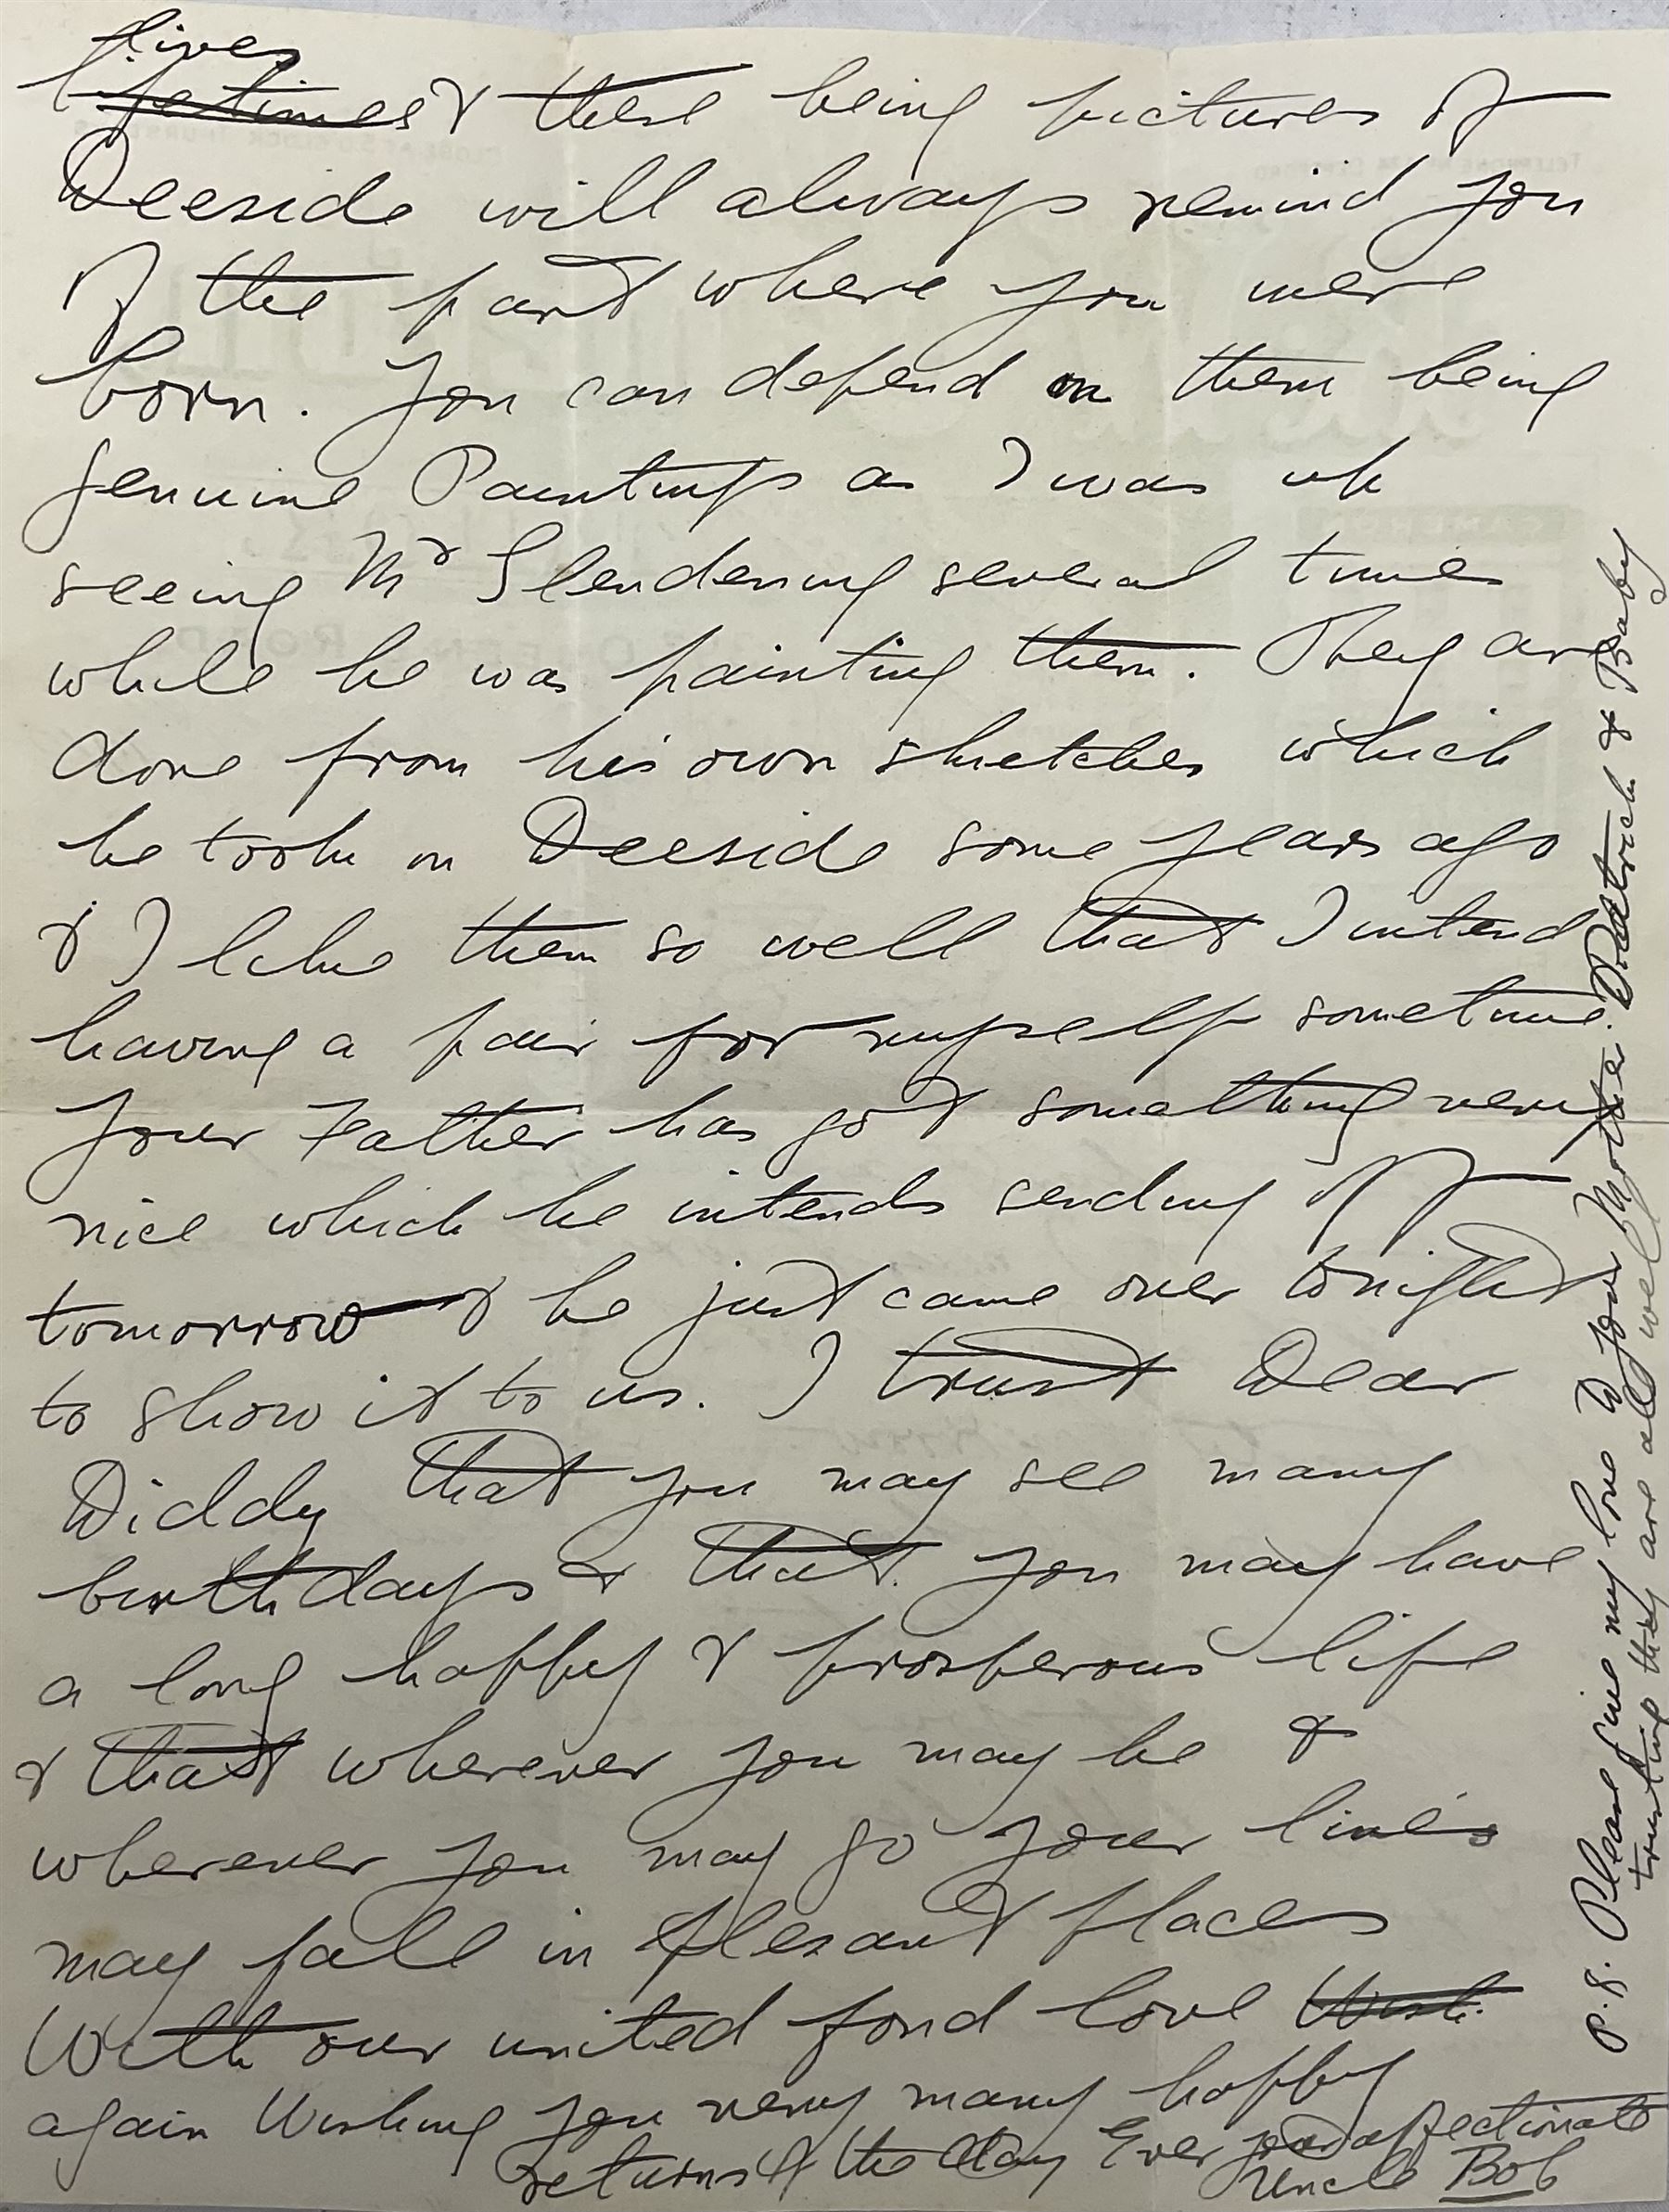 lives
lifetimes & these being pictures of
Deeside will always remind you
of the part where you were
born. You can depend on them being
genuine Paintings as I was up
seeing Mr Glendening several times
while he was painting them. They are
done from his own sketches which
he took on Deeside some years ago
& I like them so well that I intend
having a pair for myself sometime.
Your Father has got something very
nice which he intends sending off
tomorrow & he just came over tonight
to show it to us. I trust Dear
Diddy that you may see many
birthdays & that you may have
a long happy & prosperous life
& that wherever you may be &
wherever you may go your lines
may fall in plesant places
With our united fond love Wish
again Wishing you very many happy
returns of the day Ever your affectionate
Uncle Bob
P.S. Please give my love to your Mother. Patrick & Baby
trusting they are all well